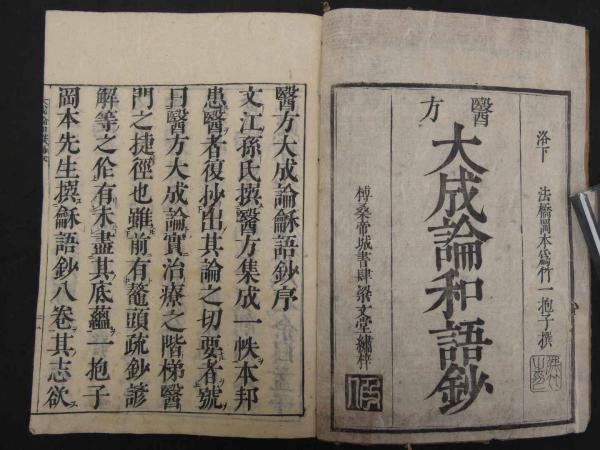 洛下 法橋岡本爲竹一抱子撰
醫方
大成論和語鈔
榑桑帝城書肆梁文堂繡梓
醫方大成論龢語鈔序
文江孫氏撰醫方集成一帙本邦
患醫者復抄出其論之切要者號
曰醫方大成論實治療之階梯醫
門之捷徑也雖前有鼇頭疏鈔諺
解等之伀有未盡其底蘊一抱子
岡本先生撰龢語鈔八卷其志欲